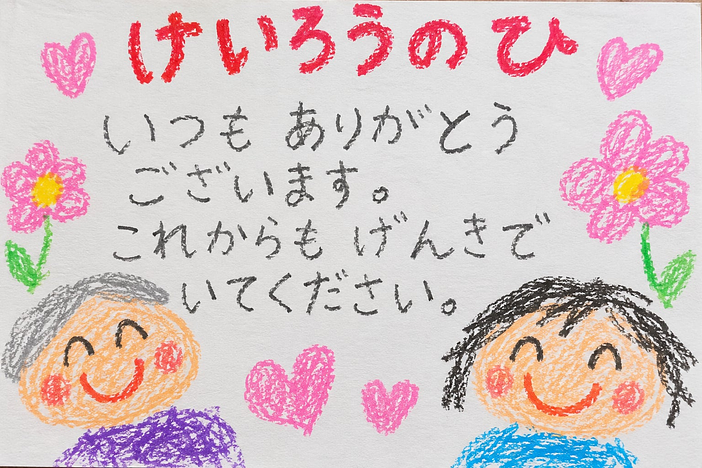 けいろうのひ
いつも ありがとう
ございます。
これからも げんきで
いてください。